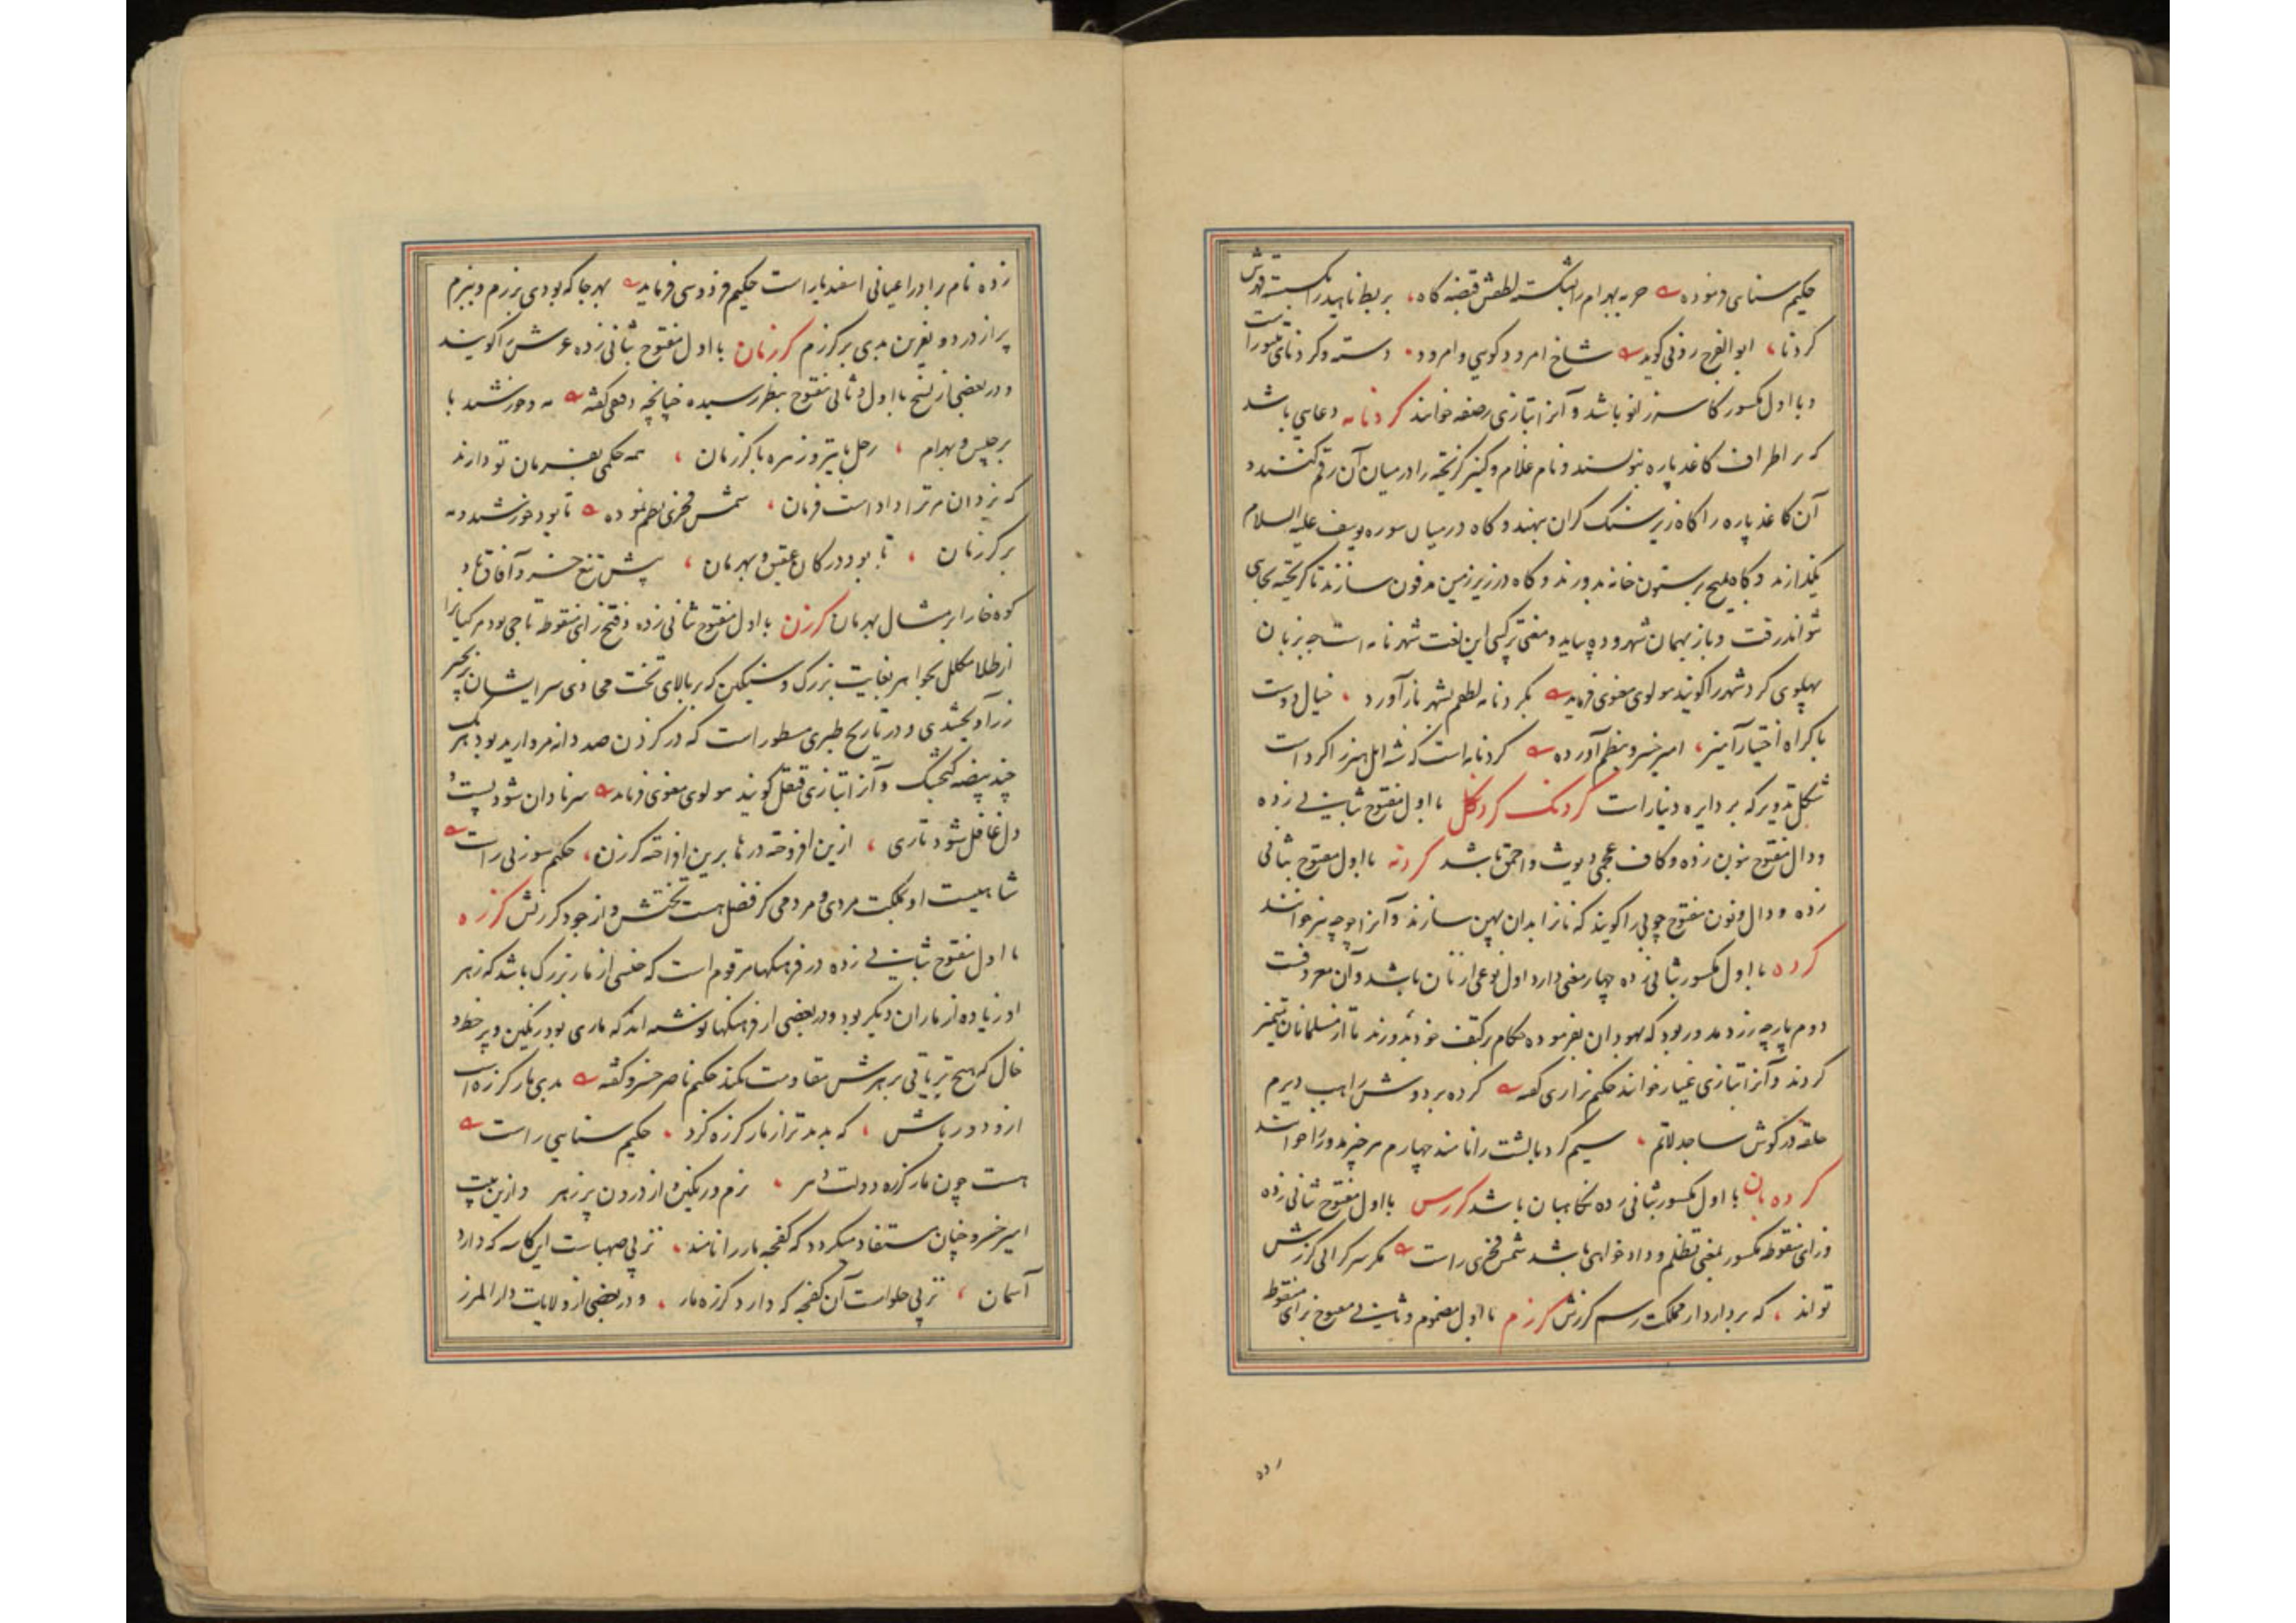 حکیم سنایی فرموده حربه بهرام را بشکسته لطفش قبضه گاه، بربط ناهید را بگسسته قهرش
کردنا، ابوالفرج رونی گوید شاخ امرود گویی و امرود. دسته و کردنای طنبور است
و با اول مکسور کاسه زانو باشد و آنرا بتازی رضفه خوانند کردنامه دعایی باشد
که بر اطراف کاغد پاره بنویسند و نام غلام و کنیز گریخته را در میان آن رقم کنند و
آن کاغد پاره را گاه زیر سنگ گران بنهند و گاه در میان سوره یوسف علیه السلام
بگذارند و گاه بمیخ بر ستون خانه بدوزند و گاه در زیر زمین مدفون سازند تا گریخته بجایی
نتواند رفت و باز بهمان شهر و ده بیاید و معنی ترکیبی این لغت شهرنامه است چه بزبان
پهلوی کرد شهر را گویند مولوی معنوی فرماید بکردنامه لطفم بشهر باز آورد. خیال دوست
باکراه اختیار آمیز، امیر خسرو بنظم آورده کردنامه است که شه اهل هنر را کرد است
شکل تدویر که بر دایره دینار است کردنک کردنکل با اول مفتوح بثانی زده
و دال مفتوح بنون زده و کاف عجمی دیوث و احمق باشد کردنه با اول مفتوح بثانی
زده و دال و نون مفتوح چوبی را گویند که نان را بدان پهن سازند و آنرا چوچه نیز خوانند
کرده با اول مکسور بثانی زده چهار معنی دارد اول نوعی از نان باشد و آن معروفست
دوم پارچه زرد مدور بود که یهودان بفرموده حکام بر کتف خود بدوزند تا از مسلمانان متمیز
کردند و آنرا بتازی غیار خوانند حکیم نزاری گفته کرده بر دوش راهب دیرم
حلقه در گوش ساجد لاتم، سیم کرد بالشت را نامند چهارم هر چیز مدور را خوانند
کرده بان با اول مکسور بثانی زده نگاهبان باشد کرزش با اول مفتوح بثانی زده
و زای منقوطه مکسور بمعنی تظلم و دادخواهی باشد شمس فخری راست مگر سرگرائی کرزش
تواند، که بردارد از مملکت رسم کرزش کرزم با اول مضموم و ثانی مفتوح بزای منقوط
زده
زده نام برادر اعیانی اسفندیار است حکیم فردوسی فرماید بهر جا که بودی برزم و ببزم
پر از درد و نفرین بدی بر کرزم کرزمان با اول مفتوح بثانی زده عرش را گویند
و در بعضی از نسخ با اول و ثانی مفتوح بنظر رسیده چنانچه دقیقی گفته مه و خورشید با
برجیس و بهرام، زحل با تیر و زهره با کرزمان، همه حکمی بفرمان تو دارند
که یزدان مر ترا داد است فرمان، شمس فخری بنظم نموده تا بود خورشید و مه
بر کرزمان، تا بود در کان عقیق و بهرمان، پیش تیغ خسرو آفاق باد
کوه خارا بر مثال بهرمان کرزن با اول مفتوح بثانی زده و فتح زای منقوطه تاجی بود مر کیانرا
از طلا مکلل بجواهر بغایت بزرگ و سنگین که بر بالای تخت محاذی سر ایشان بزنجیر
زر آویختندی و در تاریخ طبری مسطور است که در کرزن صد دانه مروارید بود هر یک
چند بیضه گنجشک و آنرا بتازی قنقل گویند مولوی معنوی فرماید سر نادان شود پست و
دل غافل شود تاری، ازین افروخته در ما برین افراخته کرزن، حکیم سوزنی راست
شاهیست او بملکت مردی و مردمی کز فضل هست تختش و از جود کرزنش کرزه
با اول مفتوح بثانی زده در فرهنگها مرقوم است که جنسی از مار بزرگ باشد که زهر
او زیاده از ماران دیگر بود و در بعضی از فرهنگها نوشته اند که ماری بود رنگین و پر خط و
خال که هیچ تریاقی بزهرش مقاومت نکند حکیم ناصر خسرو گفته بدی مار کرزه است
ازو دور باش، که بد بدتر از مار کرزه گزد. حکیم سنایی راست
هست چون مار کرزه دولت دهر. نرم و رنگین و از درون پر زهر و ازین بیت
امیر خسرو چنان مستفاد میگردد که کفچه مار را نامند. نز پی صهباست این کاسه که دارد
آسمان، نز پی حلواست آن کفچه که دارد کرزه مار. و در بعضی از ولایات دار المرز